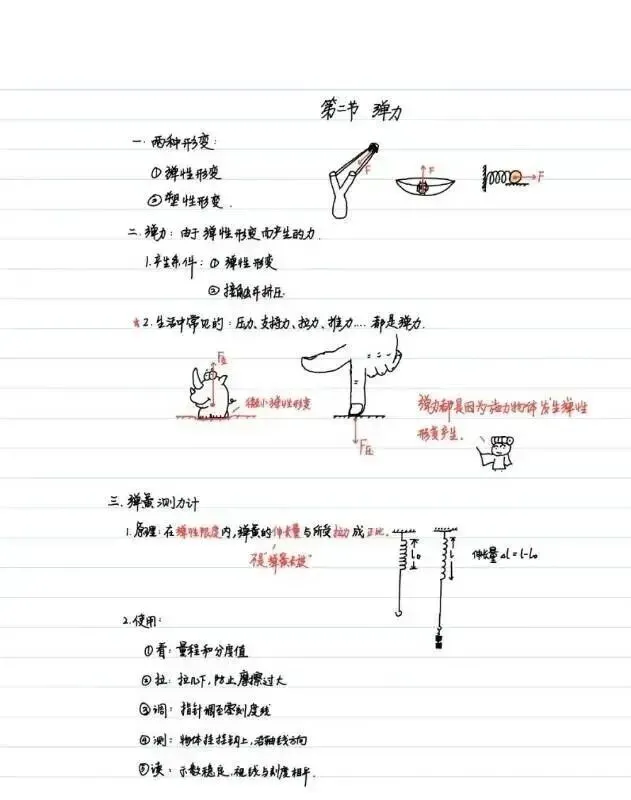 第二节 弹力
一. 两种形变:
① 弹性形变
② 塑性形变.
F
F
F
二. 弹力: 由于弹性形变而产生的力.
1.产生条件: ① 弹性形变
② 接触并挤压
*2.生活中常见的: 压力、支持力、拉力、推力.... 都是弹力.
微小弹性形变
F压
弹力都是因为施力物体发生弹性
形变产生.
三. 弹簧测力计
1.原理: 在弹性限度内, 弹簧的伸长量与所受拉力成正比.
不是"弹簧长度"
l₀
l
伸长量 Δl = l-l₀
2.使用:
①看: 量程和分度值
②拉: 拉几下, 防止摩擦过大
③调: 指针调至零刻度线
④测: 物体挂挂钩上, 沿轴线方向
⑤读: 示数稳定, 视线与刻度相平.